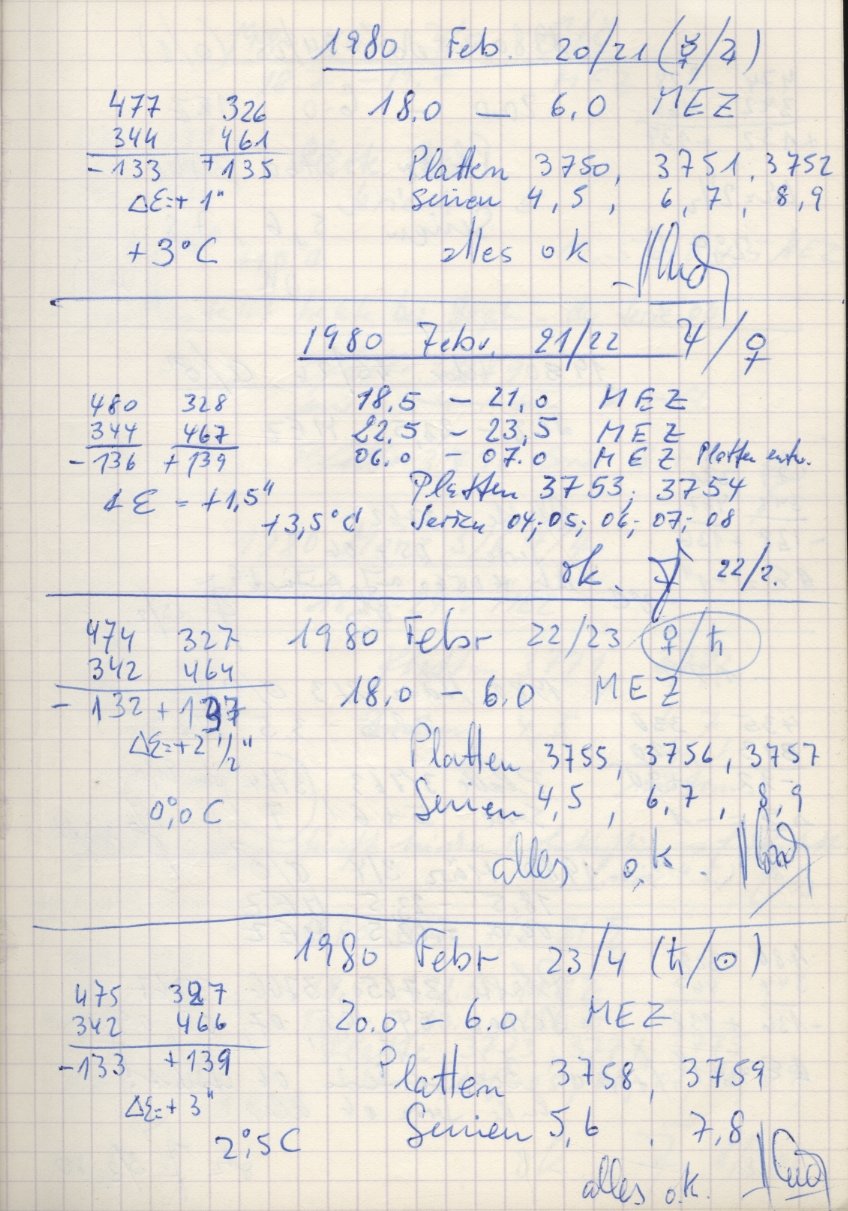 1980 Feb. 20/21 (☿/♃)
477 326 18.0 — 6,0 MEZ
344 461
-133 +135 Platten 3750, 3751, 3752
ΔE=+1" Serien 4,5, 6,7, 8,9
+3°C alles ok
1980 Febr. 21/22 ♃/♀
480 328 18,5 – 21,0 MEZ
344 467 22,5 – 23,5 MEZ
-136 +139 06.0 – 07.0 MEZ Platten entw.
ΔE = +1,5" Platten 3753; 3754
+3,5°C Serien 04; 05; 06; 07; 08
ok. 22/2.
474 327 1980 Febr 22/23 ♀/♄
342 464
-132 +137 18.0 – 6.0 MEZ
ΔE=+2 1/2" Platten 3755, 3756, 3757
0°,0 C Serien 4,5, 6,7, 8,9
alles o.k.
1980 Febr 23/4 (♄/☉)
475 327
342 466 20.0 – 6.0 MEZ
-133 +139 Platten 3758, 3759
ΔE=+3" Serien 5,6, 7,8
2°,5 C
alles o.k.